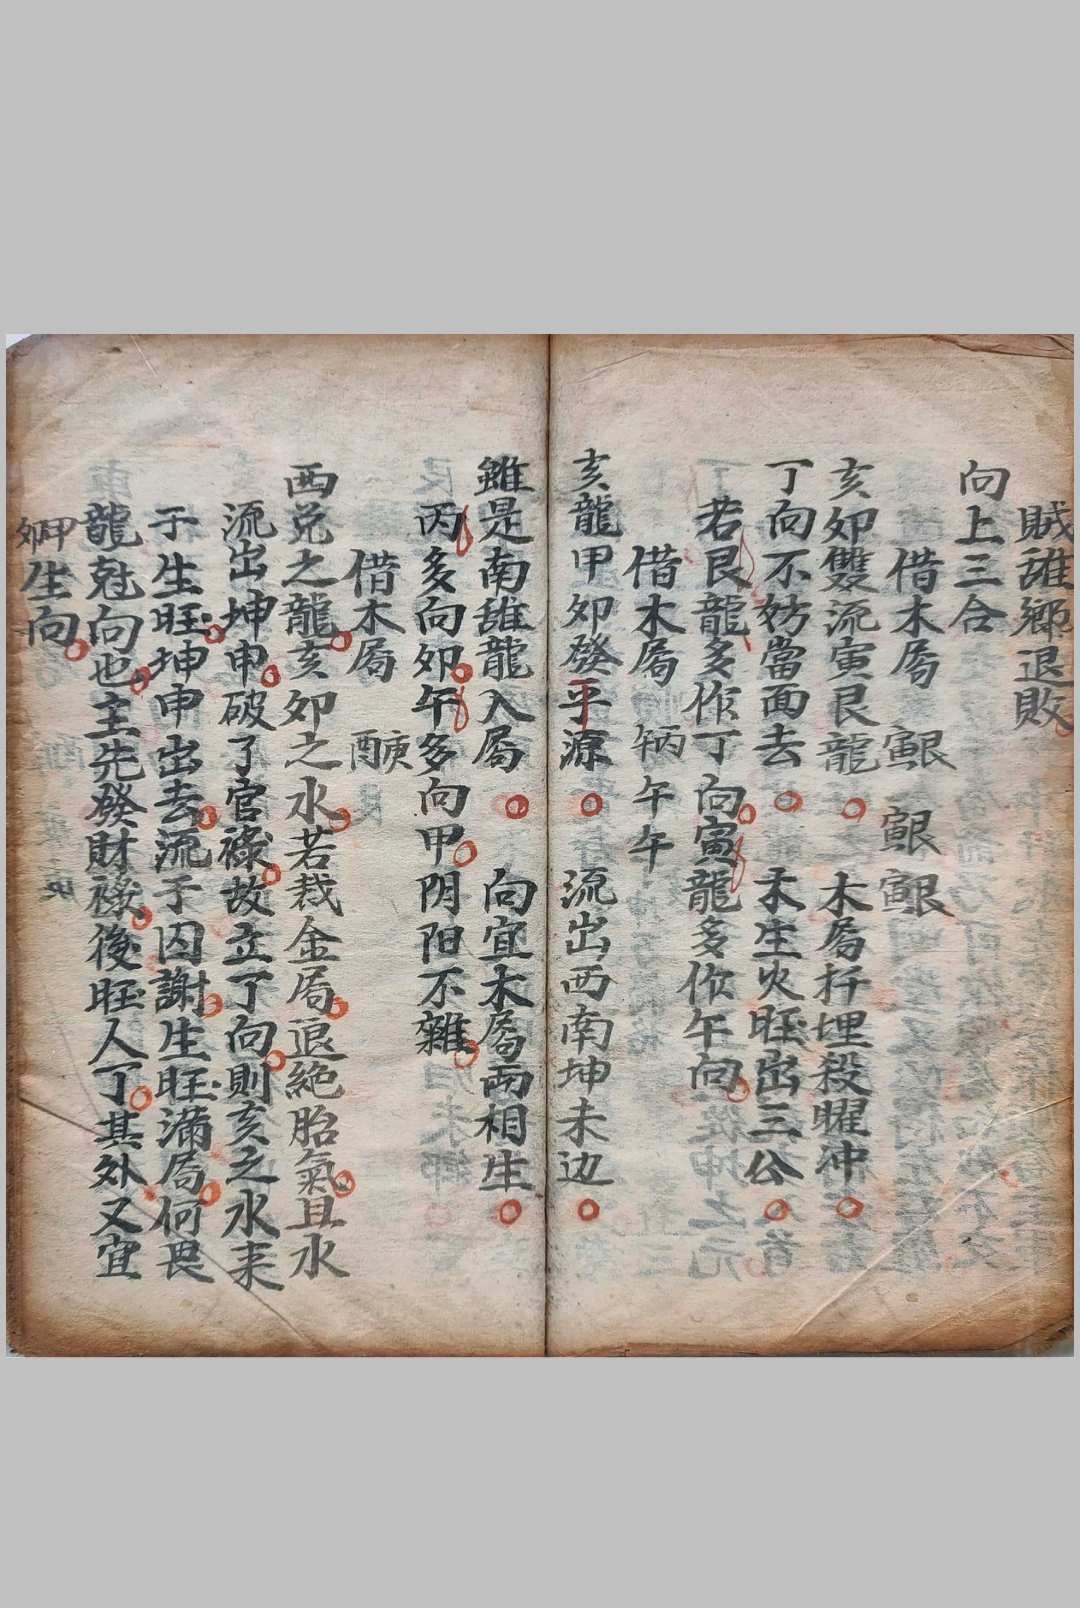 賊離鄉退敗
向上三合
借木局 艮寅 艮寅 艮寅
亥卯雙流寅艮龍 木局扦埋殺曜冲
丁向不妨當面去 木生火旺出三公
若艮龍多作丁向寅龍多作午向
借木局 丙午午午
亥龍甲卯發乎源 流出西南坤未边
雖是南離龍入局 向宜木局兩相生
丙多向卯午多向甲阴阳不雜
借木局 庚酉
西兑之龍亥卯之水若裁金局退絶胎氣且水
流出坤申破了官祿故立丁向則亥之水来
于生旺坤申出去流于囚謝生旺滿局何畏
龍尅向也主先發財祿後旺人丁其外又宜
甲卯生向